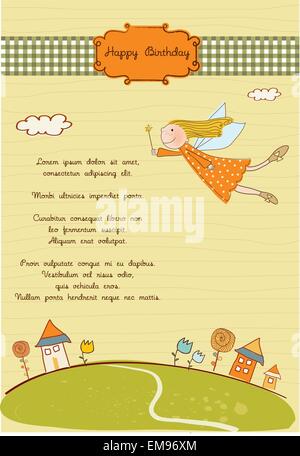 Happy Birthday
Lorem ipsum dolor sit amet,
consectetur adipiscing elit.
Morbi ultricies imperdiet porta.
Curabitur consequat libero non
fermentum suscipit.
Aliquam erat volutpat.
Proin vulputate congue mi eu dapibus.
Vestibulum vel risus odio,
quis vehicula eros.
Nullam porta hendrerit neque nec mattis.
alamy
alamy stock photo
EM96XM
www.alamy.com